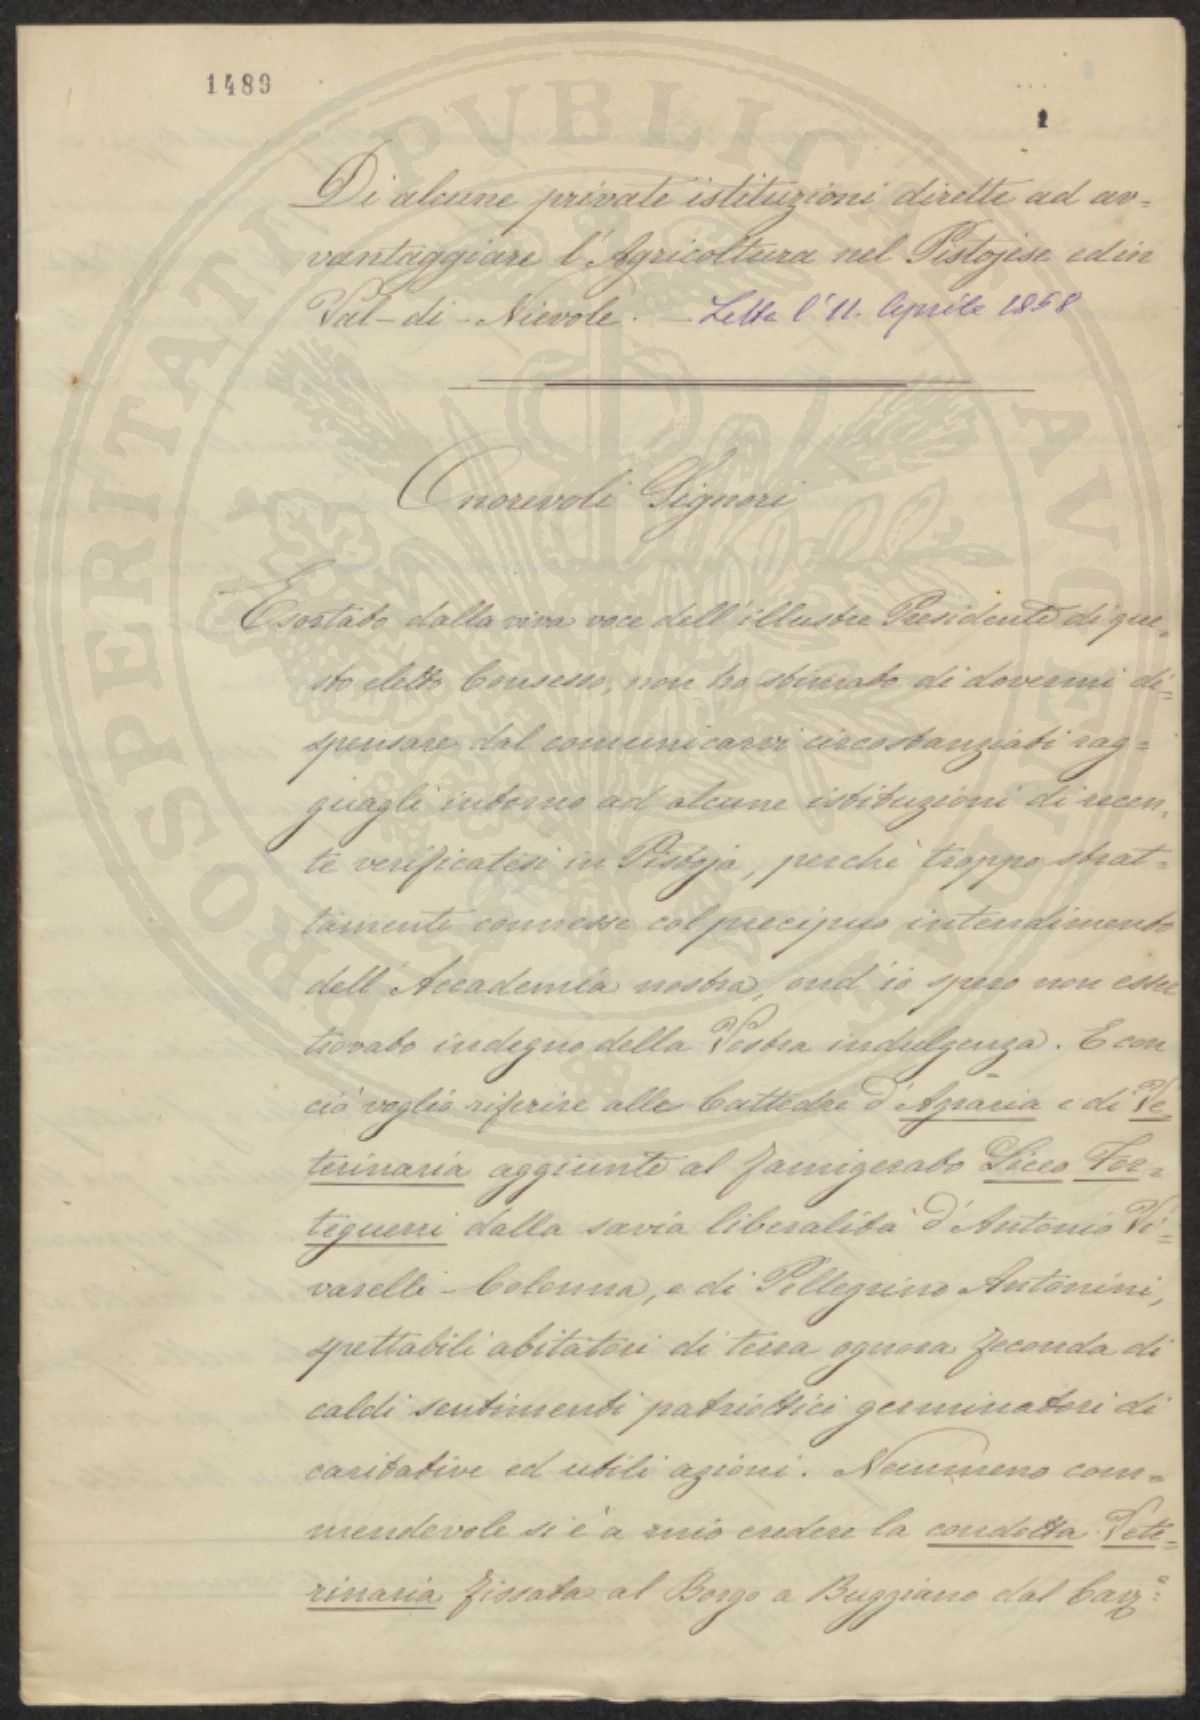 1489
1
Di alcune private istituzioni dirette ad av=
vantaggiare l'Agricoltura nel Pistojese ed in
Val-di-Nievole. - Letta l'11. Aprile 1858
Onorevoli Signori
Esortato dalla viva voce dell'illustre Presidente di que=
sto eletto Consesso, non ho stimato di dovermi di=
spensare dal comunicarvi circostanziati rag=
guagli intorno ad alcune istituzioni di recen=
te verificatesi in Pistoja, perchè troppo stret=
tamente connesse col precipuo intendimento
dell'Accademia nostra, ond'io spero non esser
trovato indegno della Vostra indulgenza. E con
ciò voglio riferire alle Cattedre d'Agraria e di Ve=
terinaria aggiunte al famigerato Liceo For=
teguerri dalla savia liberalità d'Antonio Vi=
varelli-Colonna, e di Pellegrino Antonini,
spettabili abitatori di terra ognora feconda di
caldi sentimenti patriottici germinatori di
caritative ed utili azioni. Neiumeno com=
mendevole si è a mio credere la condotta Vete=
rinaria fissata al Borgo a Buggiano dal Cav:
PROSPERITATI PUBLICAE AUGENDAE